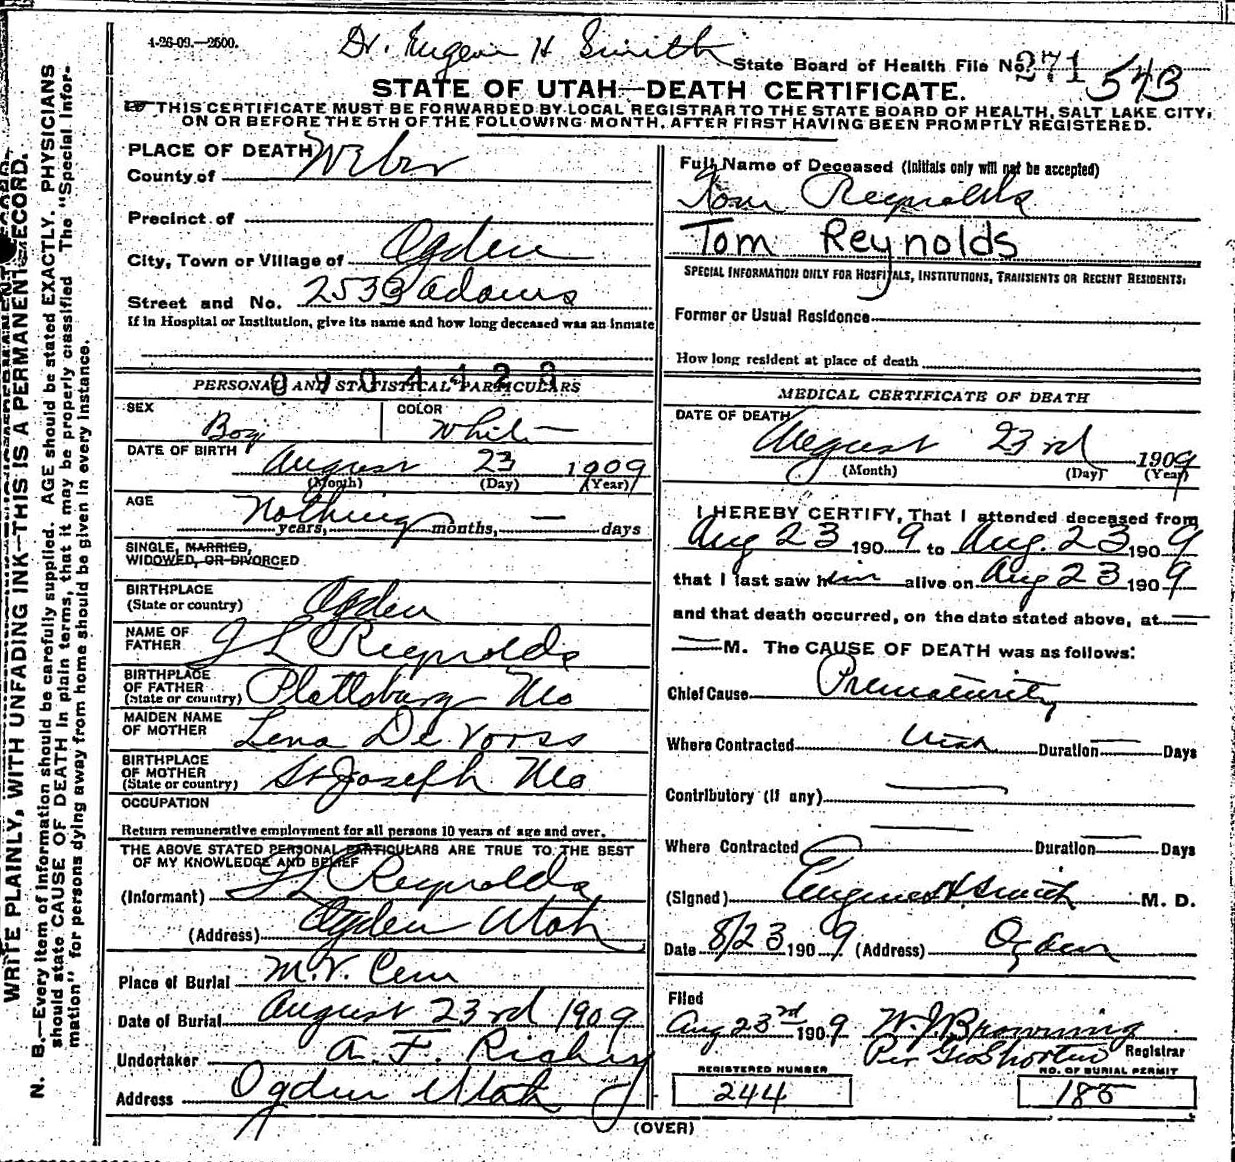 4-26-09.—2500.
Dr. Eugene H Smith
State Board of Health File No. 271 543
STATE OF UTAH—DEATH CERTIFICATE.
THIS CERTIFICATE MUST BE FORWARDED BY LOCAL REGISTRAR TO THE STATE BOARD OF HEALTH, SALT LAKE CITY,
ON OR BEFORE THE 5TH OF THE FOLLOWING MONTH, AFTER FIRST HAVING BEEN PROMPTLY REGISTERED.
WRITE PLAINLY, WITH UNFADING INK—THIS IS A PERMANENT RECORD.
N. B.—Every item of information should be carefully supplied. AGE should be stated EXACTLY. PHYSICIANS
should state CAUSE OF DEATH in plain terms, that it may be properly classified The "Special Infor-
mation" for persons dying away from home should be given in every instance.
PLACE OF DEATH
County of Weber
Precinct of
City, Town or Village of Ogden
Street and No. 2533 Adams
If in Hospital or Institution, give its name and how long deceased was an inmate
0904428
PERSONAL AND STATISTICAL PARTICULARS
SEX Boy COLOR White
DATE OF BIRTH August 23 1909
(Month) (Day) (Year)
AGE Nothing
years, months, — days
SINGLE, MARRIED,
WIDOWED, OR DIVORCED
BIRTHPLACE
(State or country) Ogden
NAME OF
FATHER J L Reynolds
BIRTHPLACE
OF FATHER
(State or country) Plattsburg Mo
MAIDEN NAME
OF MOTHER Lena De Vorss
BIRTHPLACE
OF MOTHER
(State or country) St Joseph Mo
OCCUPATION
Return remunerative employment for all persons 10 years of age and over.
THE ABOVE STATED PERSONAL PARTICULARS ARE TRUE TO THE BEST
OF MY KNOWLEDGE AND BELIEF
(Informant) J L Reynolds
(Address) Ogden Utah
Place of Burial M.V. Cem
Date of Burial August 23rd 1909
Undertaker A. F. Righy
Address Ogden Utah
Full Name of Deceased (Initials only will not be accepted)
Tom Reynolds
Tom Reynolds
SPECIAL INFORMATION ONLY FOR HOSPITALS, INSTITUTIONS, TRANSIENTS OR RECENT RESIDENTS:
Former or Usual Residence
How long resident at place of death
MEDICAL CERTIFICATE OF DEATH
DATE OF DEATH
August 23rd 1909
(Month) (Day) (Year)
I HEREBY CERTIFY, That I attended deceased from
Aug 23 1909 to Aug. 23 1909
that I last saw him alive on Aug 23 1909
and that death occurred, on the date stated above, at —
— M. The CAUSE OF DEATH was as follows:
Chief Cause Prematurity
Where Contracted Utah Duration — Days
Contributory (if any) —
Where Contracted — Duration — Days
(Signed) Eugene H. Smith M. D.
Date 8/23 1909 (Address) Ogden
Filed
Aug 23rd 1909 W. J. Browning
Per Geo Shorten Registrar
REGISTERED NUMBER NO. OF BURIAL PERMIT
244 185
(OVER)